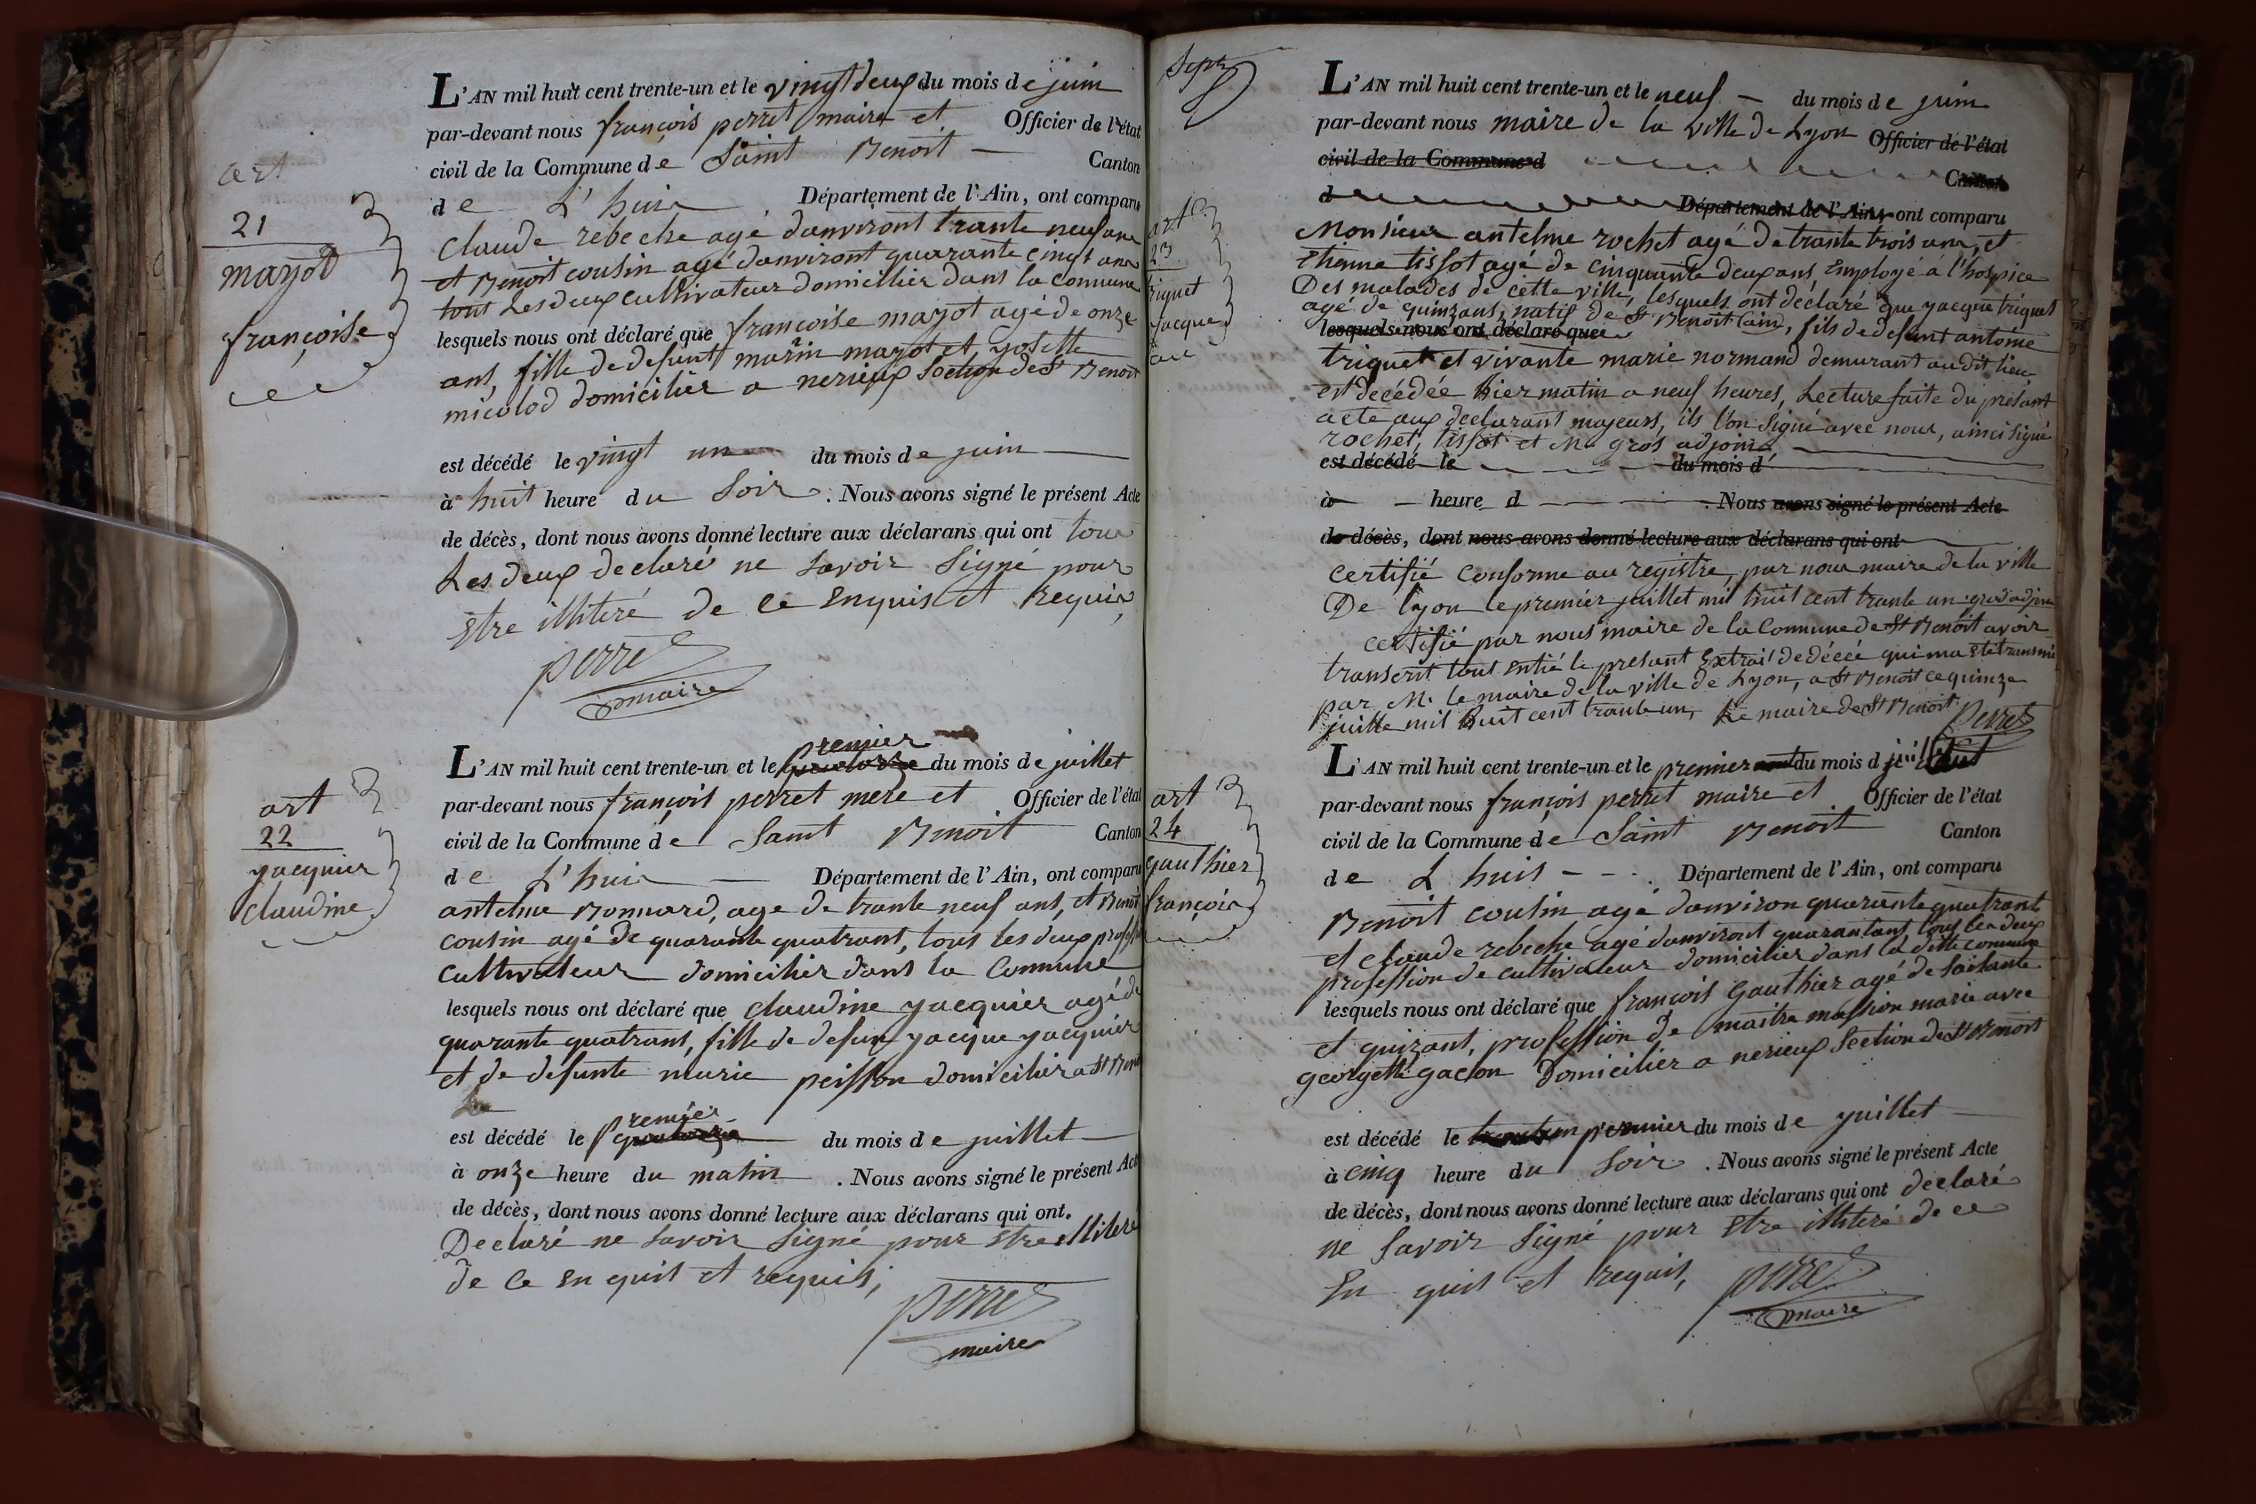 art
21
mayot
françoise
L'AN mil huit cent trente-un et le vingt deux du mois de juin
par-devant nous françois perret maire et Officier de l'état
civil de la Commune de Saint Benoit Canton
de L'huis Département de l'Ain, ont comparu
claude rebeche agé danviront trante neuf ans
et Benoit cousin agé danviront quarante cingt ans
tous Les deux cultivateur domicilier dans la commune
lesquels nous ont déclaré que françoise mayot agé de onze
ans, fille de defunt marin mayot et yosette
micolod domicilier a nerieux Section de St Benoit
est décédé le vingt un du mois de juin
à huit heure du Soir. Nous avons signé le présent Acte
de décès, dont nous avons donné lecture aux déclarans qui ont tous
Les deux declaré ne Savoir Signé pour
Estre illiteré de ce Enquis et Requis,
perret
maire
art
22
yacquier
claudine
L'AN mil huit cent trente-un et le premier quatorze du mois de juillet
par-devant nous françois perret mere et Officier de l'état
civil de la Commune de Saint Benoit Canton
de L'huis Département de l'Ain, ont comparu
antelme Bonnard, age de trante neuf ans, et Benoit
cousin agé de quarante quatrant, tous les deux profession
cultivateur domicilier dans la Commune
lesquels nous ont déclaré que claudine yacquier agé de
quarante quatrans, fille de defun yacque yacquier
et de defunte marie peisson domicilier a St Benoit
est décédé le premier quatorze du mois de juillet
à onze heure du matin. Nous avons signé le présent Acte
de décès, dont nous avons donné lecture aux déclarans qui ont.
Declaré ne Savoir Signé pour Estre illiteré
de ce En quis et requis,
perret
maire
Sept
art
23
triquet
yacque
L'AN mil huit cent trente-un et le neuf du mois de juin
par-devant nous maire de la ville de Lyon Officier de l'état
civil de la Commune d
Canton
d Département de l'Ain, ont comparu
Monsieur antelme rochet agé de trante trois ans, et
Etienne tissot agé de cinquante deux ans Employé á l'hospice
Des malades de cette ville, lesquels ont déclaré que yacque triquet
agé de quinzans, natif de St Benoit (ain), fils de defunt antoine
lesquels nous ont déclaré que
triquet et vivante marie normand demurant au dit lieu
est decédée hier matin a neuf heures, Lecture faite du présant
acte aux declarant majeurs, ils l'on Signé avec nous, ainci Signé
rochet, tissot et Mr gros adjoint,
est décédé le du mois d
à heure d . Nous avons signé le présent Acte
de décès, dont nous avons donné lecture aux déclarans qui ont
certifié conforme au registre, par nous maire de la ville
De lyon le premier juillet mil huit cent trante un. gros adjoint
certifié par nous maire de la Commune de St Benoit avoir
transcrit tout Entié le presant Extrai de décé qui ma Eté transmi
par M. le maire de la ville de Lyon, a St Benoit ce quinze
juille mil huit cent trante un, Le maire de St Benoit Perret
art
24
gauthier
françois
L'AN mil huit cent trente-un et le premier aout du mois d juillet
par-devant nous françois perret maire et Officier de l'état
civil de la Commune de Saint Benoit Canton
de L huis Département de l'Ain, ont comparu
Benoit cousin agé danviron quarante quatrant
et claude rebeche agé danviront quarantans tous les deux
profession de cultivateur domicilier dans la ditte commune
lesquels nous ont déclaré que françois Gauthier agé de Soisante
et quizant, profession de maitre massion marie avec
georgette gacon Domicilier a nerieux Section de St Benoit
est décédé le premier du mois de juillet
à cinq heure du Soir. Nous avons signé le présent Acte
de décès, dont nous avons donné lecture aux déclarans qui ont declaré
ne Savoir Signé pour Estre illiteré de ce
En quis et requis,
perret
maire